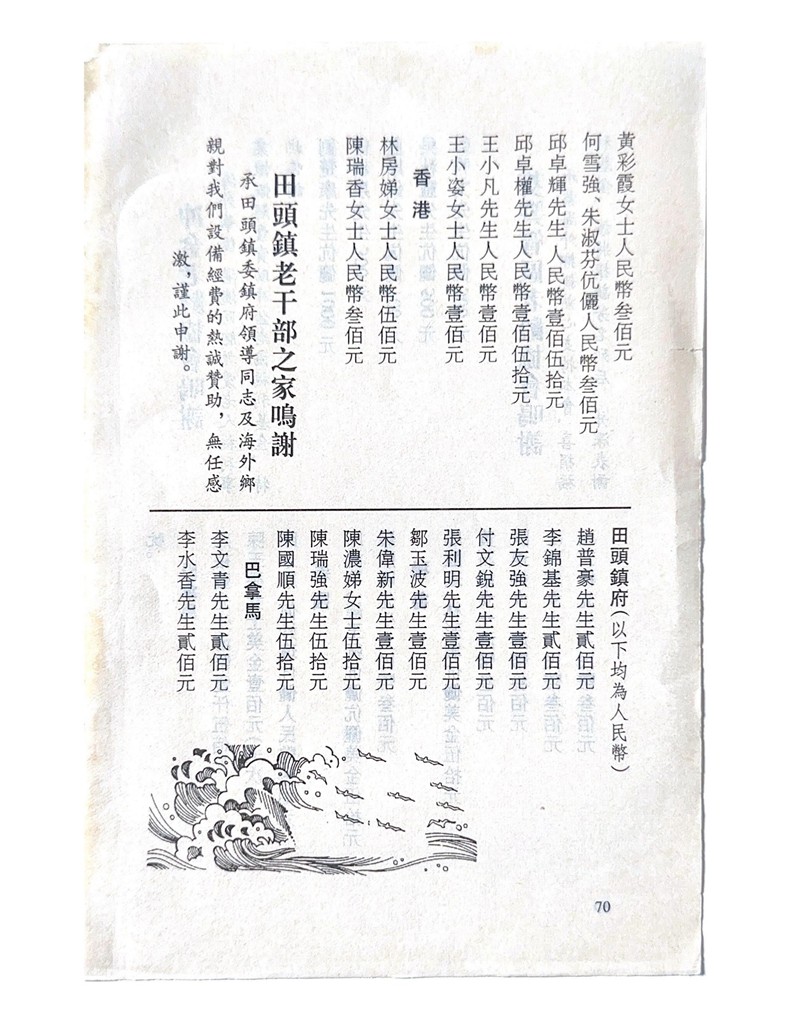 黃彩霞女士人民幣叁佰元
何雪強、朱淑芬伉儷人民幣叁佰元
邱卓輝先生人民幣壹佰伍拾元
邱卓權先生人民幣壹佰伍拾元
王小凡先生人民幣壹佰元
王小姿女士人民幣壹佰元
香港
林房娣女士人民幣伍佰元
陳瑞香女士人民幣叁佰元
田頭鎮老干部之家鳴謝
承田頭鎮委鎮府領導同志及海外鄉
親對我們設備經費的熱誠贊助，無任感
激，謹此申謝。
田頭鎮府（以下均為人民幣）
趙普豪先生貳佰元
李錦基先生貳佰元
張友強先生壹佰元
付文銳先生壹佰元
張利明先生壹佰元
鄒玉波先生壹佰元
朱偉新先生壹佰元
陳濃娣女士伍拾元
陳瑞強先生伍拾元
陳國順先生伍拾元
巴拿馬
李文青先生貳佰元
李水香先生貳佰元
70